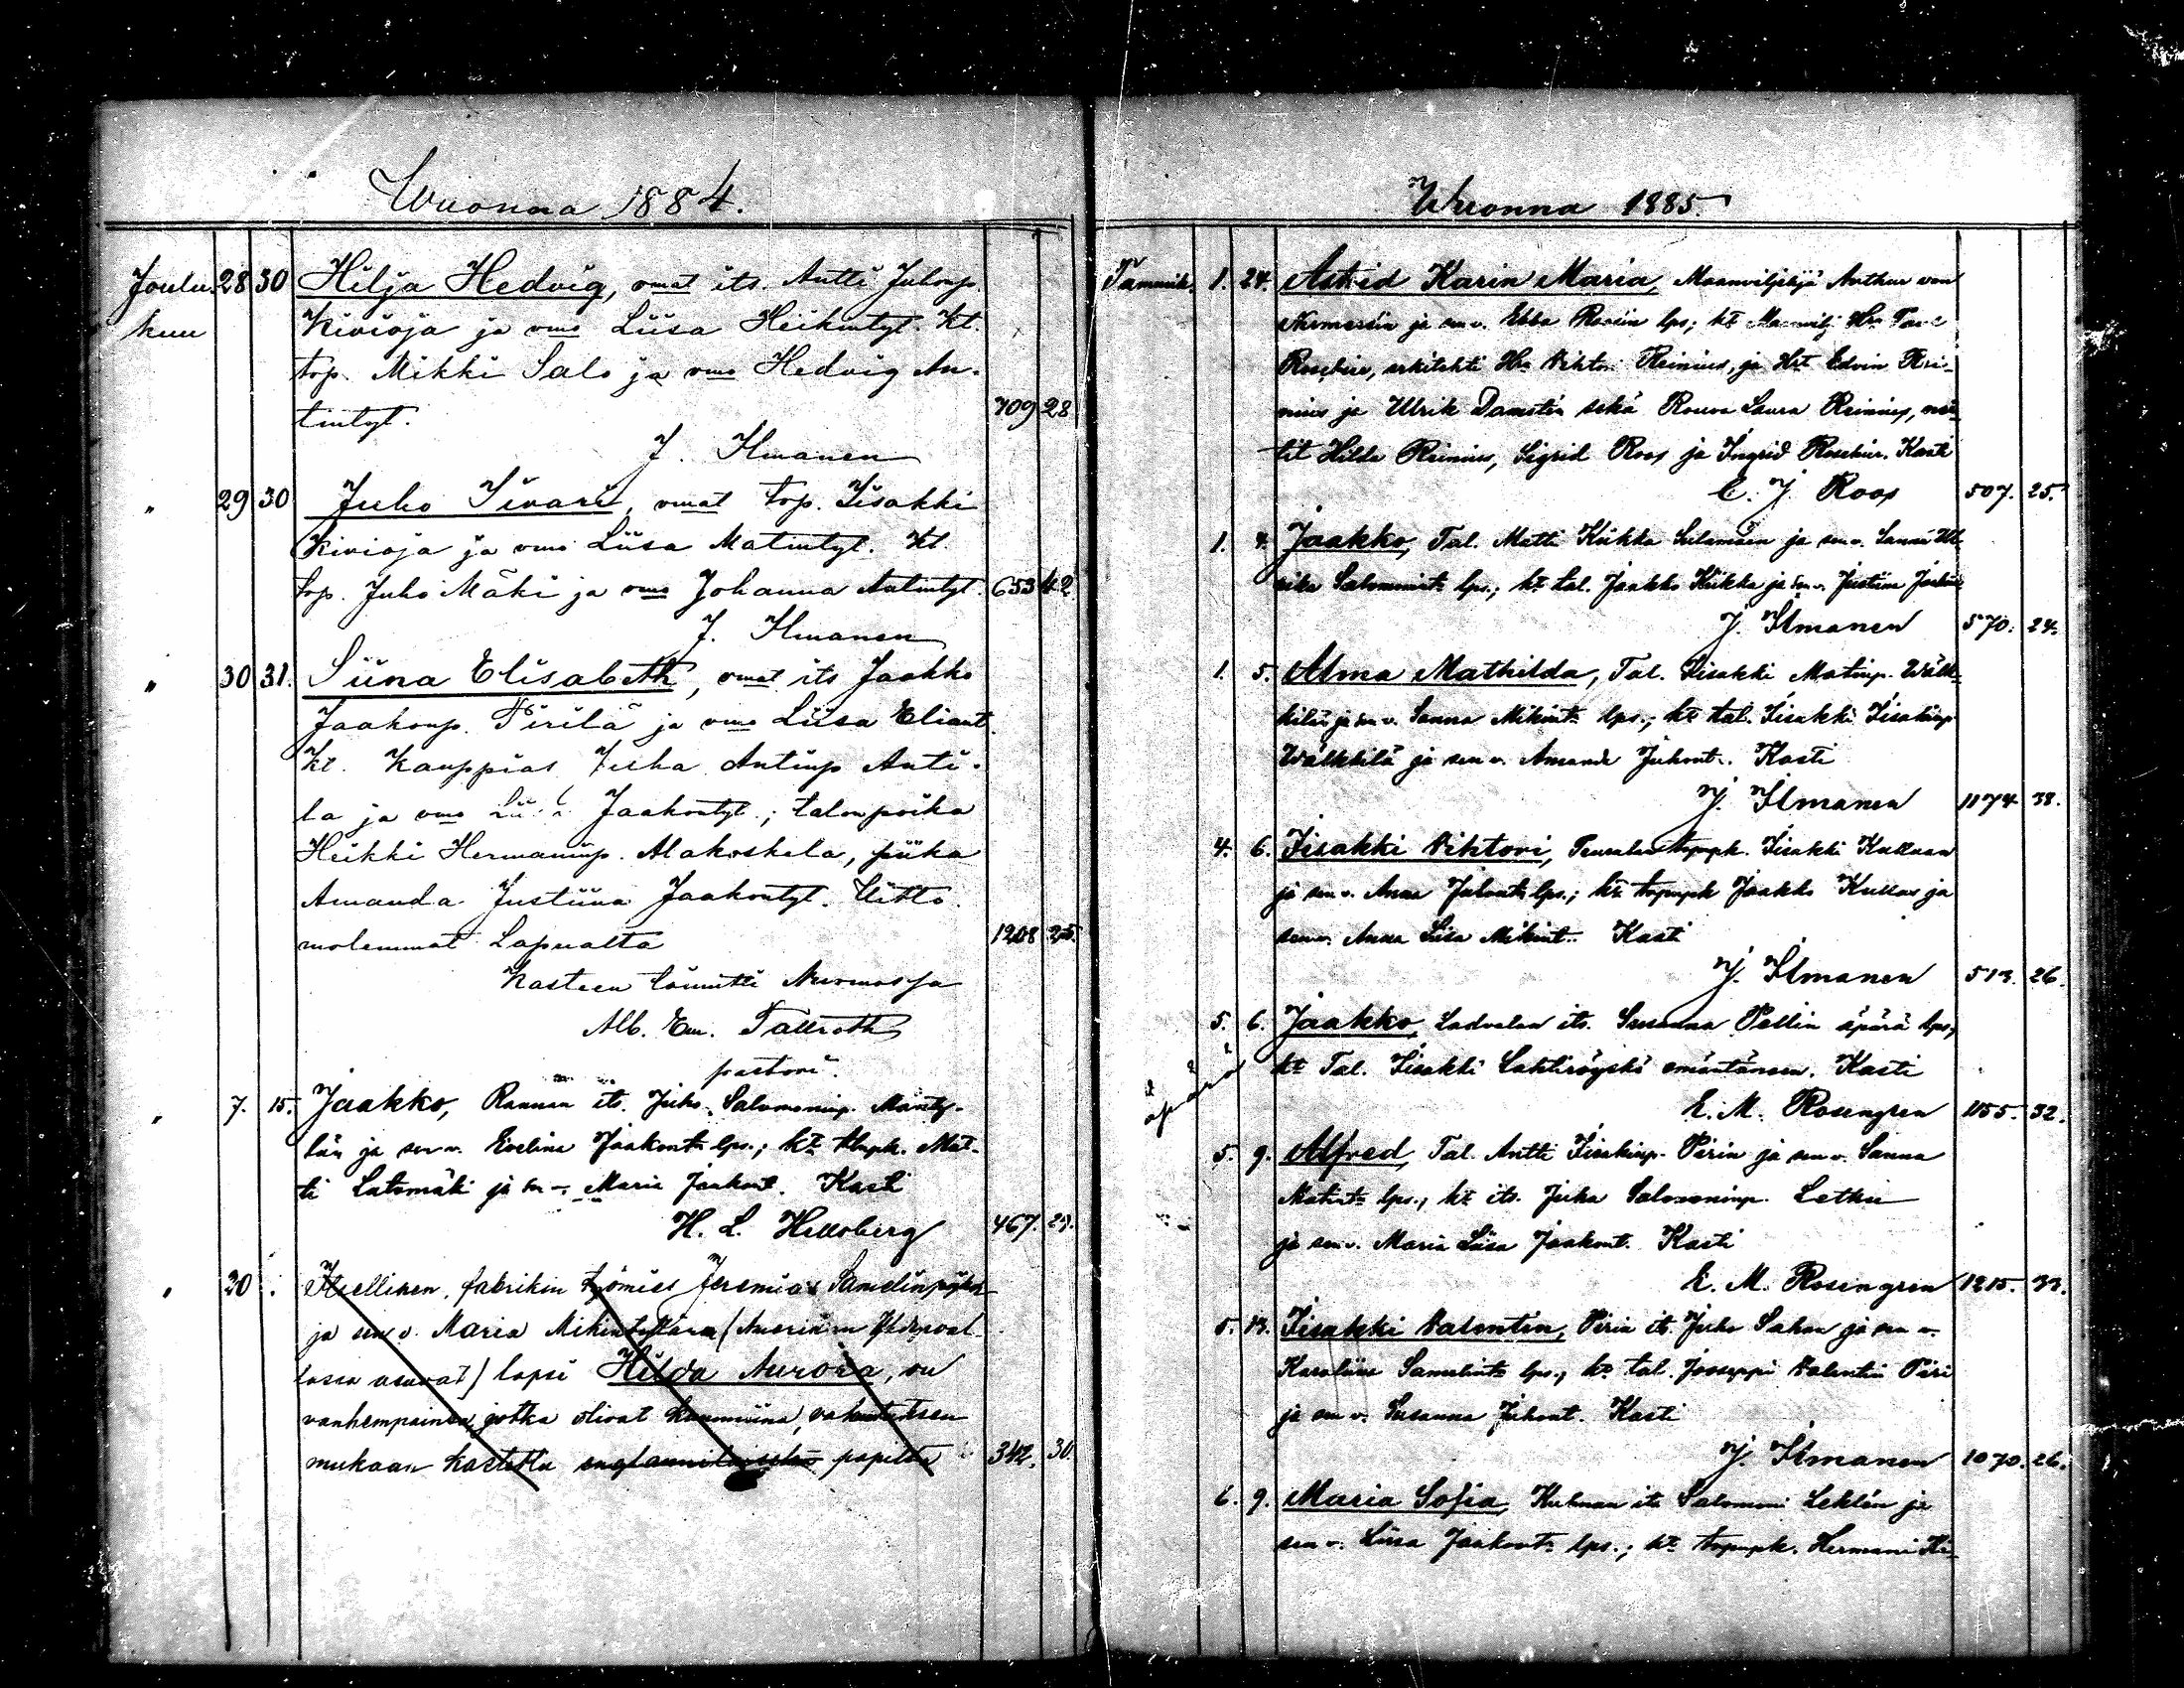 Wuonna 1884.
Joulu- 28 30 Hilja Hedvig, omat its. Antti Juhonp.
kuu Kivioja ja vmo Liisa Heikintyt. Kt.
top. Mikki Salo ja vmo Hedvig An-
tintyt. 709 28
J. Ilmanen
" 29 30 Juho Iivari, omat top. Iisakki
Kivioja ja vmo Liisa Matintyt. Kt.
top. Juho Mäki ja vmo Johanna Antintyt. 653 42
J. Ilmanen
" 30 31. Siina Elisabeth, omat its Jaakko
Jaakonp. Pirilä ja vmo Liisa Eliant.
Kt. Kauppias Juha Antinp Anti-
la ja vmo Jaakontyt.; talonpoika
Heikki Hermaninp. Alakoskela, piika
Amanda Justiina Jaakontyt. Uitto
molemmat Lapualta 1208 25.
Kasteen toimitti Nurmossa
Alb. Em. Tallroth
pastori.
" 7. 15. Jaakko, Rannan its. Juho Salomoninp. Mänty-
län ja sen v. Evelina Jaakont. lps.; kt. Mat-
ti Latomäki ja sen v. Maria Jaakont. Kasti
H. L. Helloberg 467. 29.
" 20 . fabrikin työmies Jeremias Samelinpojan
ja sen v. Maria Mikintyttären (Amerikan Yhdysval-
lossa asuvat) lapsi Hilda Aurora, on
vanhempainsa, jotka olivat vakuutuksen
mukaan kastettu englannilaiselta papilta 342. 30.
Wuonna 1885.
Tammik. 1. 24. Astrid Karin Maria, Maanviljelijä Arthur von
ja sen v. Ebba lps; kt. Hra
arkitehti Hra Viktor Reinius, ja Hrt Edvin Rei-
nius ja Ulrik Damstén sekä Rouva Laura Reinius, nei-
tit Hilda Reinius, Sigrid Roos ja Ingrid Kasti
C. J. Roos 507. 25.
1. 4. Jaakko, Tal. Matti Kiikka ja sen v. Sanna Ul-
rika Salomonint. lps.; kt. tal. Jaakko Kiikka ja sen v. Justiina
J. Ilmanen 570. 24.
1. 5. Alma Mathilda, Tal. Iisakki Matinp. Wälk-
kilän ja sen v. Sanna Mikint. lps.; kt. tal. Iisakki Iisakinp
Wälkkilä ja sen v. Amanda Juhont. Kasti
J. Ilmanen 1174. 38.
4. 6. Iisakki Viktori, Iisakki Kullaan
ja sen v. Anna Juhont. lps.; kt. Jaakko Kullas ja
sen v. Anna Liisa Mikint. Kasti
J. Ilmanen 513. 26.
5. 6. Jaakko, its. Susanna Pellin äpärä lps,
äpärä kt. Tal. Iisakki Lahtiröyskö emäntänsen. Kasti
E. M. Rosengren 1155. 32.
5. 9. Alfred, Tal. Antti Iisakinp. Pirin ja sen v. Sanna
Matint. lps., kt. its. Juha Salomoninp. Letku
ja sen v. Maria Liisa Jaakont. Kasti
E. M. Rosengren 1215. 33.
5. 13. Iisakki Valentin, its. Juho Sahan ja sen v.
Karoliina Samulint. lps., kt. tal. Jooseppi Valentin Piri
ja sen v. Susanna Juhont. Kasti
J. Ilmanen 1070. 26.
6. 9. Maria Sofia, its Salomoni Leklén ja
sen v. Liisa Jaakont. lps.; kt. Hermanni